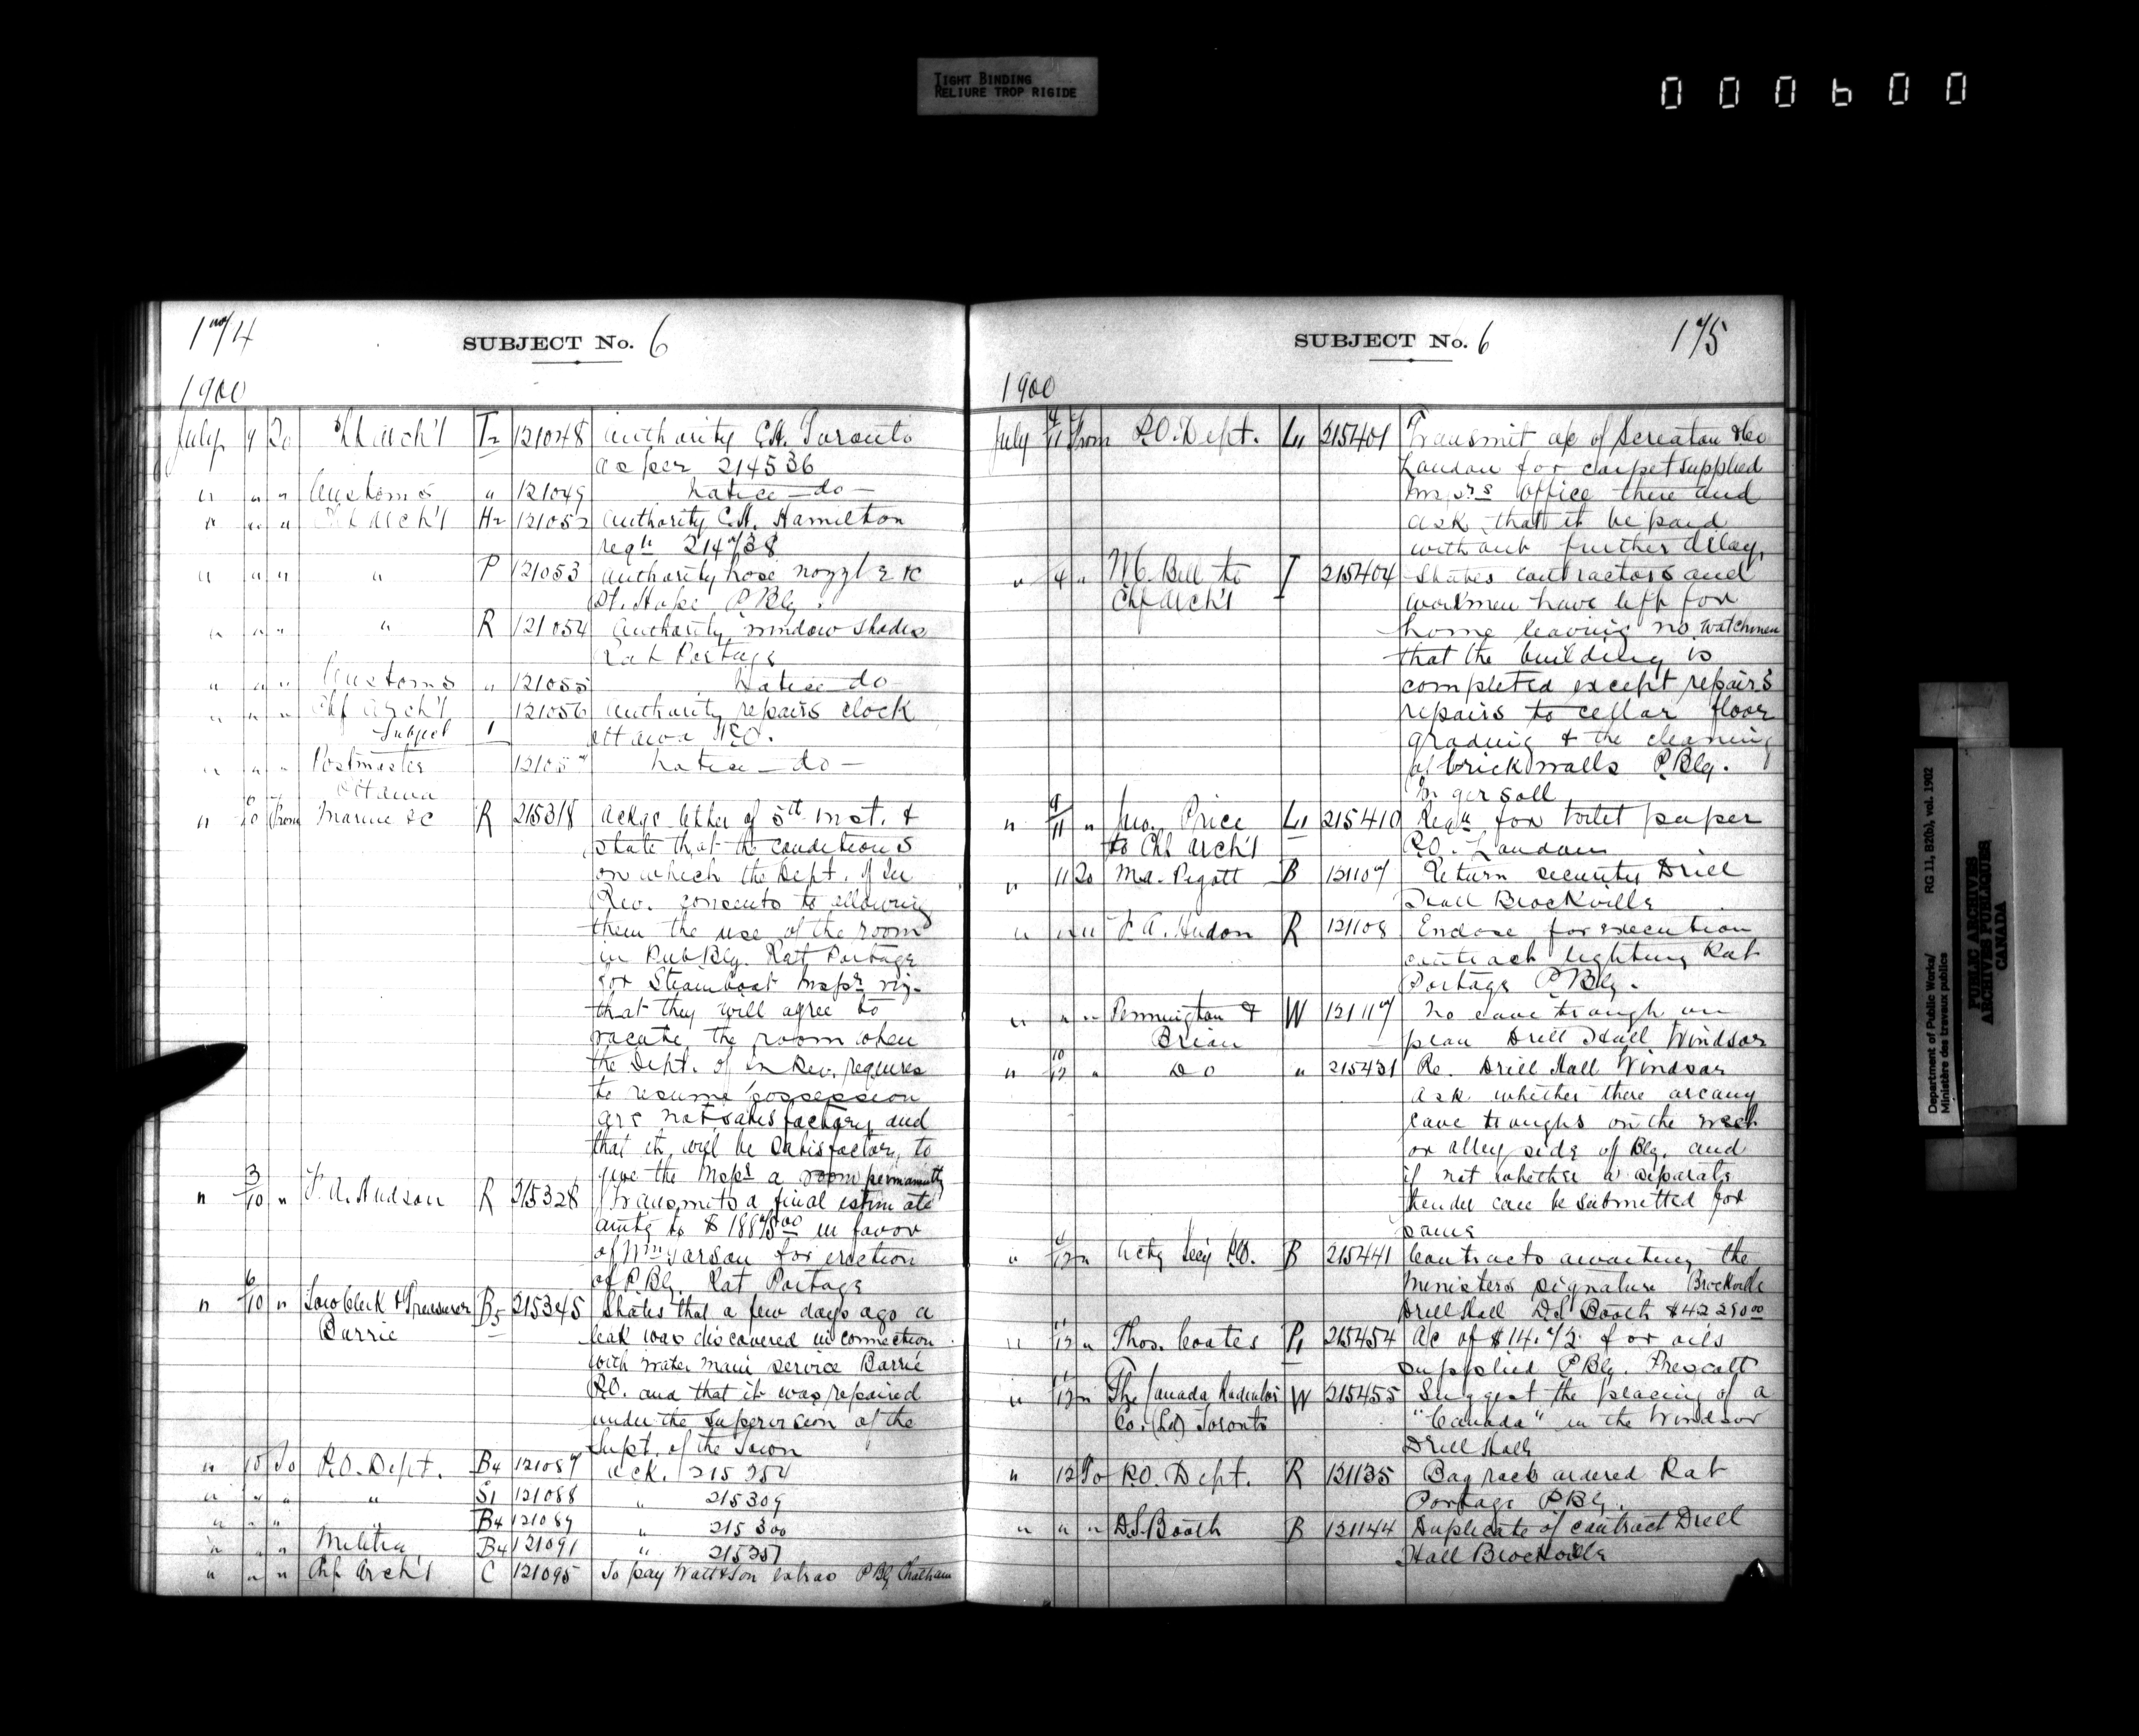 TIGHT BINDING
RELIURE TROP RIGIDE
000600
174
SUBJECT No. 6
1900
July 9 To Chf Arch't T2 121048 Authority C.H. Toronto
as per 214536
" " " Customs " 121049 Notice — do —
" " " Chf Arch't H2 121052 Authority C.H. Hamilton
reqn 214738
" " " " P 121053 Authority hose nozzle &c
Pt. Hope P.Blg.
" " " " R 121054 Authority window shades
Rat Portage
" " " Customs " 121055 Notice do
" " " Chf Arch't 121056 Authority repairs clock
Subject 1 Ottawa P.O.
" " " Postmaster 121057 Notice — do —
Ottawa
" 6/10 From Marine &c R 215318 Ackge letter of 5th inst. &
state that the conditions
on which the Dept. of In
Rev. consents to allowing
them the use of the room
in Pub Blg. Rat Portage
for Steamboat Inspr viz.
that they will agree to
vacate the room when
the Dept. of In Rev. requires
to resume possession
are not satisfactory and
that it will be satisfactory to
give the Inspr a room permanently
" 3/10 " F. A. Hudson R 215328 Transmits a final estimate
amtg to $18875.00 in favor
of Wm Garson for erection
of P.Blg. Rat Portage
" 6/10 " Town Clerk & Treasurer B5 215345 States that a few days ago a
Barrie leak was discovered in connection
with water main service Barrie
P.O. and that it was repaired
under the supervision of the
Supt. of the Town
" 10 To P.O. Dept. B4 121087 Ack. 215254
" " " " S1 121088 " 215309
" " " " B4 121089 " 215300
" " " Militia B4 121091 " 215257
" " " Chf Arch't C 121095 To pay Watt & Son extras P Blg Chatham
SUBJECT No. 6
175
1900
July 4/11 From P.O. Dept. L11 215401 Transmit a/c of Screaton & Co
London for carpet supplied
Insprs office there and
ask that it be paid
without further delay.
" 4 " M. C. Bell to I 215404 States contractors and
Chf Arch't workmen have left for
home leaving no watchman
that the building is
completed except repairs
repairs to cellar floor
grading & the cleaning
of brick walls P.Blg.
Ingersoll
" 9/11 " Jno. Price L11 215410 Reqn for toilet paper
to Chf Arch't P.O. London
" 11 To M.A. Pigott B 121107 Return security Drill
Hall Brockville
" " " F. A. Hudson R 121108 Enclose for execution
contract lighting Rat
Portage P Blg.
" " " Pennington & W 121117 No eave trough on
Brian plan Drill Hall Windsor
" 10/12 " Do " 215431 Re. Drill Hall Windsor
ask whether there are any
eave troughs on the west
or alley side of Blg. and
if not whether a separate
tender can be submitted for
same
" 12 " Actg Secy P.O. B 215441 Contracts awaiting the
Ministers signature Brockville
Drill Hall D.S. Booth $42290.00
" 11/12 " Thos. Coates P1 215454 a/c of $14.72 for oils
supplied P Blg. Prescott
" 11/12 " The Canada Radiator W 215455 Suggest the placing of a
Co. (Ld) Toronto "Canada" in the Windsor
Drill Hall
" 12 To P.O. Dept. R 121135 Bag rack ordered Rat
Portage P Blg.
" " " D.S. Booth B 121144 Duplicate of contract Drill
Hall Brockville
Department of Public Works/ RG 11, B2(b), vol. 1902
Ministère des travaux publics
PUBLIC ARCHIVES
ARCHIVES PUBLIQUES
CANADA